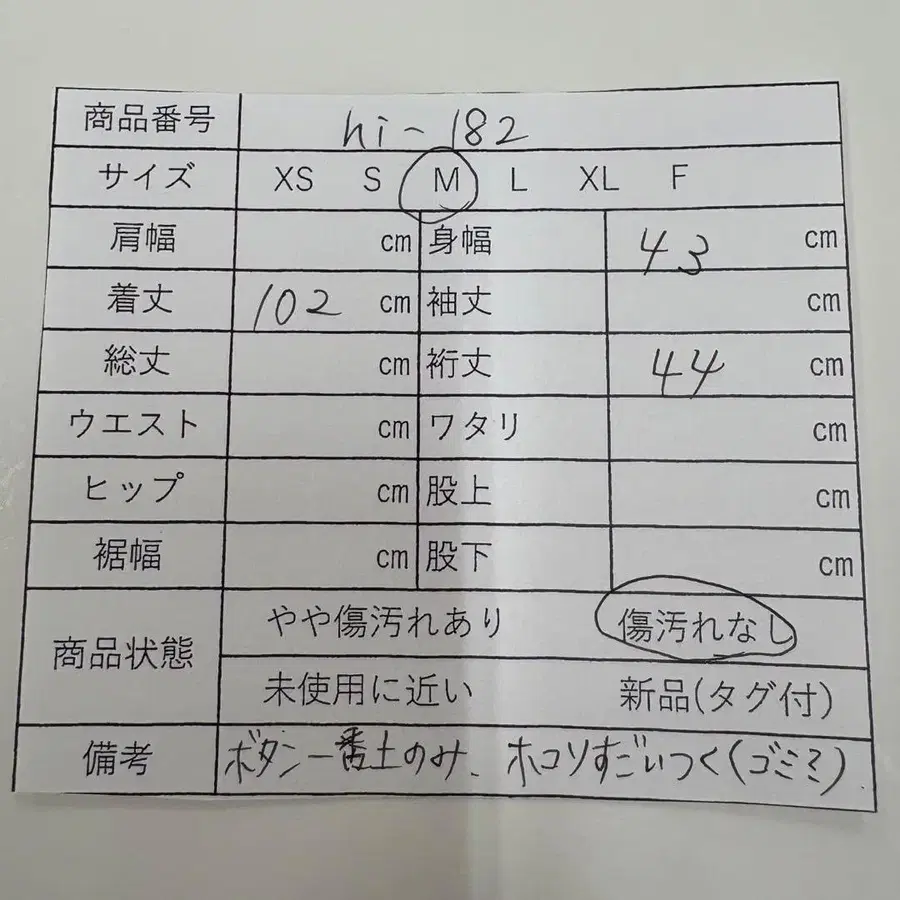 商品番号 hi-182
サイズ XS S M L XL F
肩幅 cm 身幅 43 cm
着丈 102 cm 袖丈 cm
総丈 cm 裄丈 44 cm
ウエスト cm ワタリ cm
ヒップ cm 股上 cm
裾幅 cm 股下 cm
商品状態 やや傷汚れあり 傷汚れなし
未使用に近い 新品(タグ付)
備考 ボタン一番土のみ、ホコソすごいつく(ゴミミ)